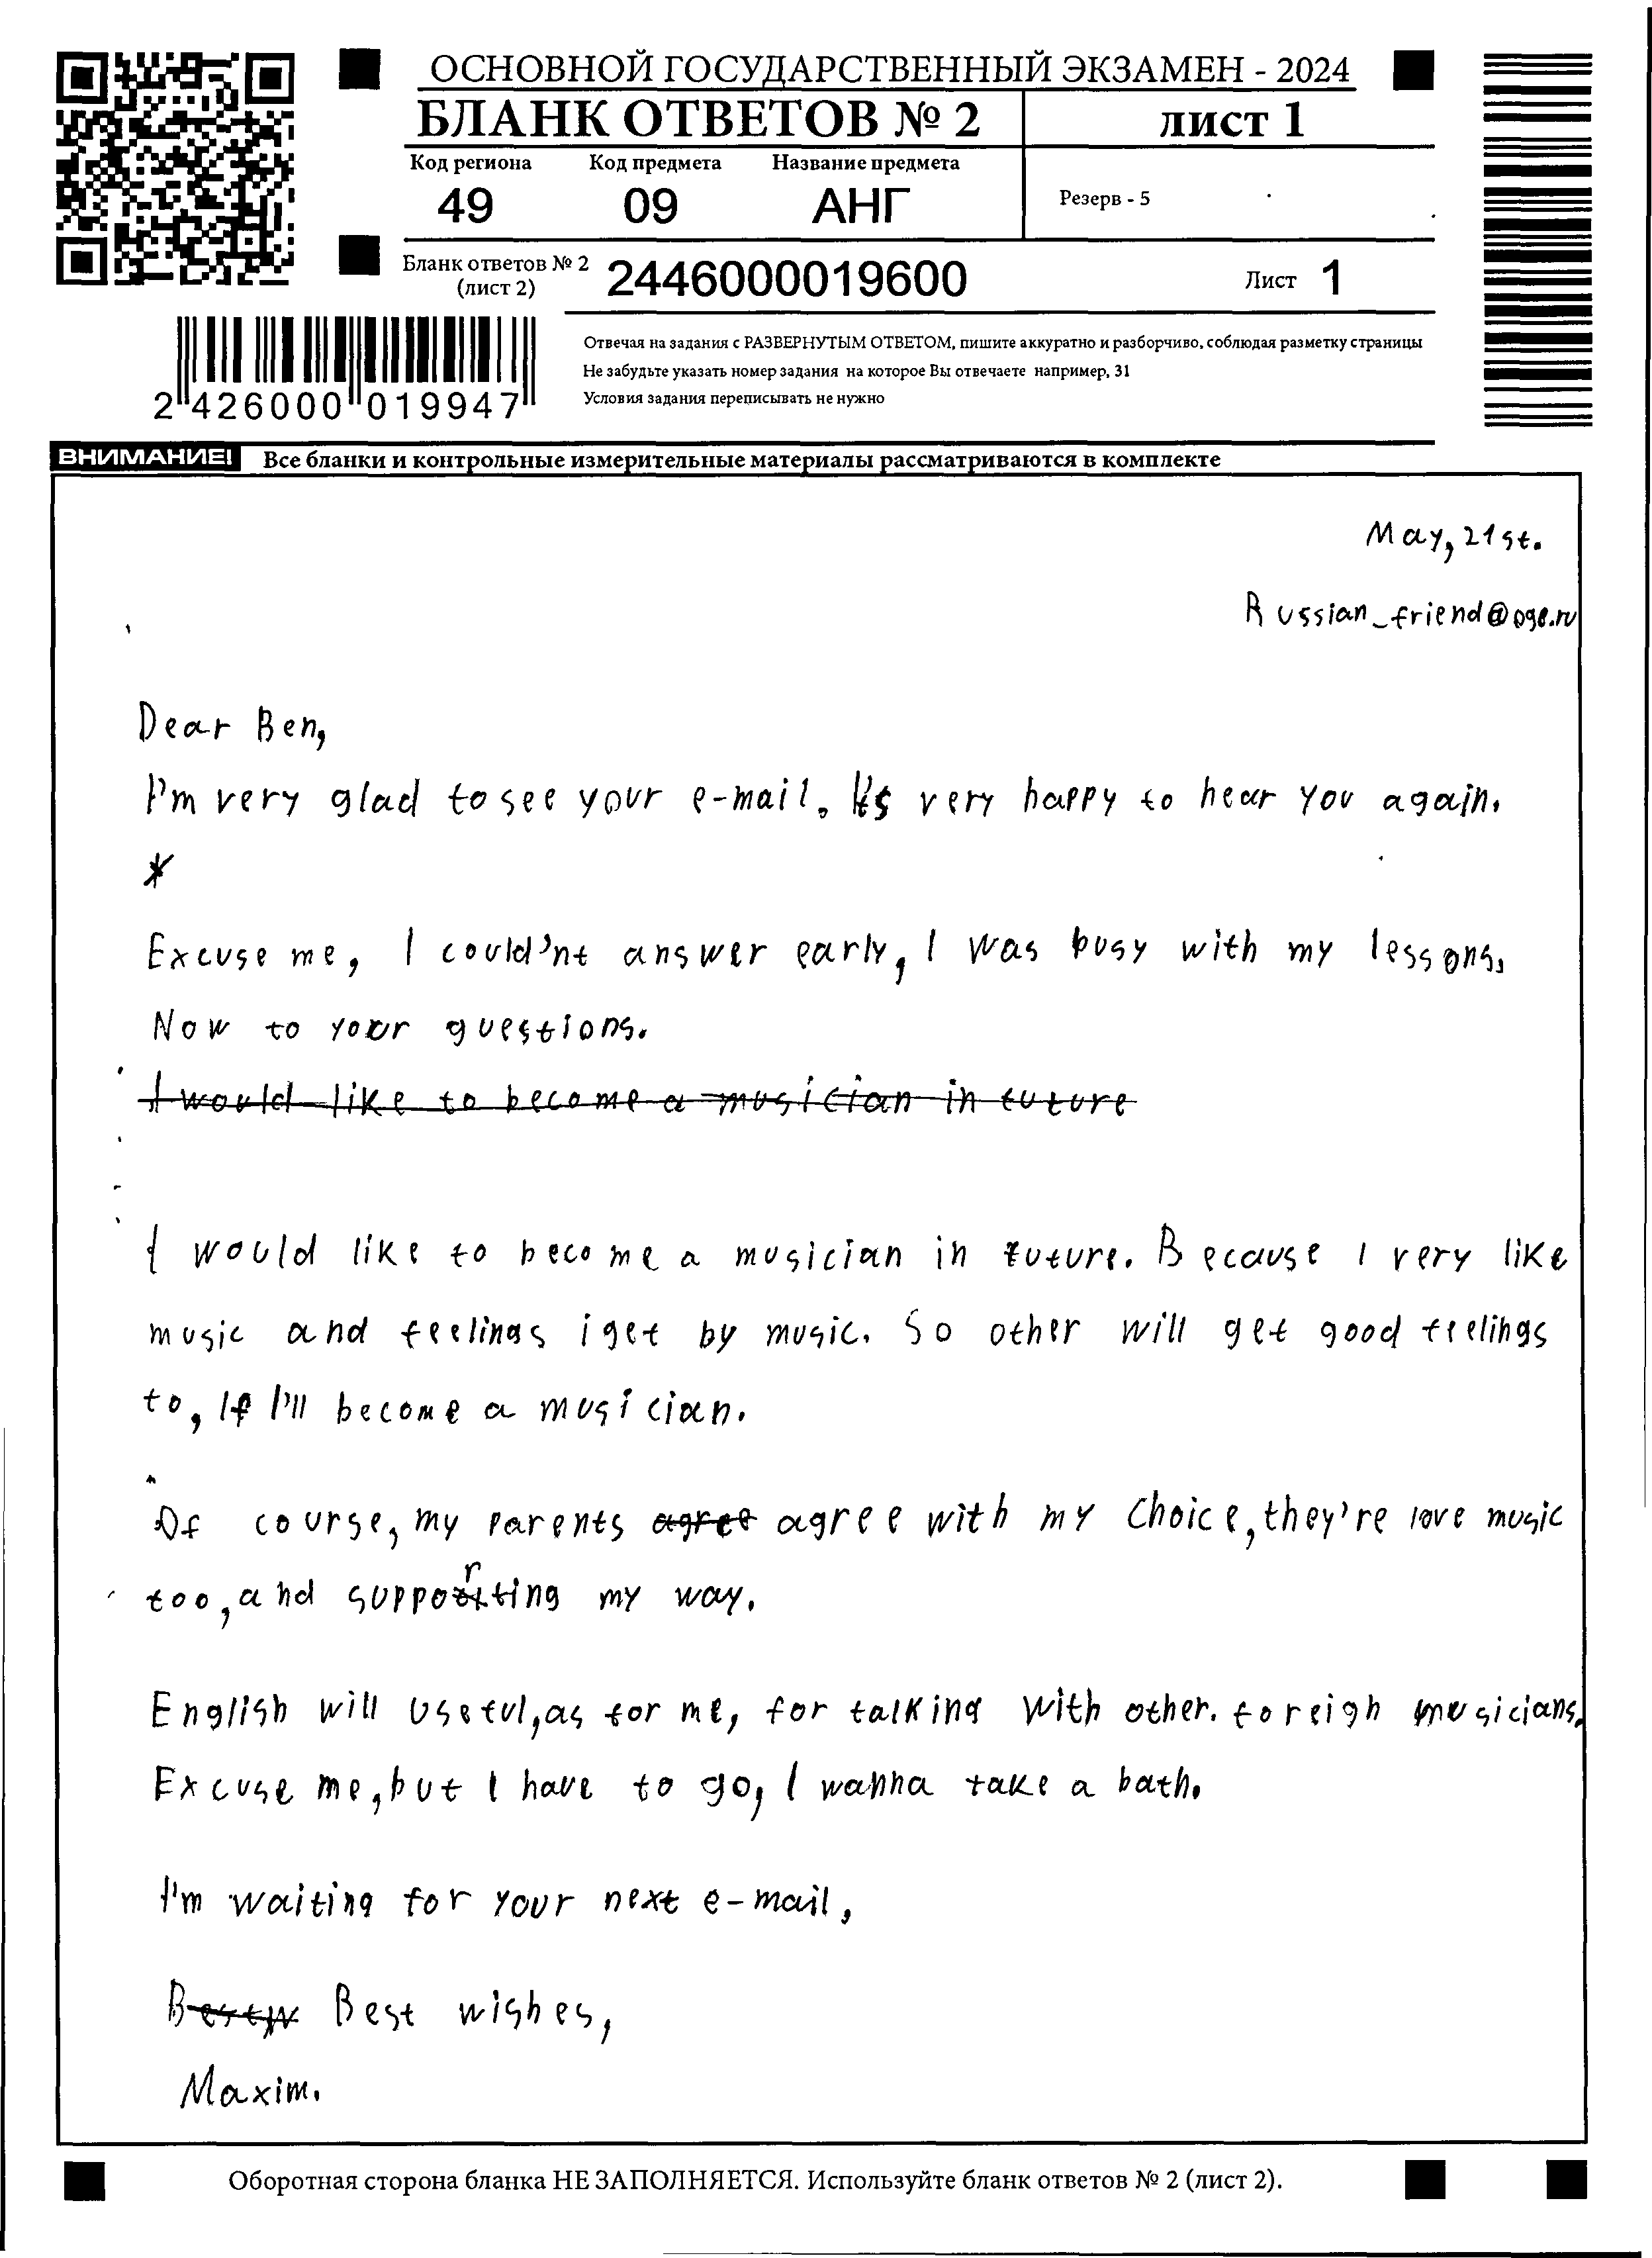 ОСНОВНОЙ ГОСУДАРСТВЕННЫЙ ЭКЗАМЕН - 2024
БЛАНК ОТВЕТОВ № 2
лист 1
Код региона Код предмета Название предмета
49 09 АНГ
Резерв - 5
Бланк ответов № 2
(лист 2)
2446000019600
Лист 1
2 426000 019947
Отвечая на задания с РАЗВЕРНУТЫМ ОТВЕТОМ, пишите аккуратно и разборчиво, соблюдая разметку страницы
Не забудьте указать номер задания на которое Вы отвечаете например, 31
Условия задания переписывать не нужно
ВНИМАНИЕ! Все бланки и контрольные измерительные материалы рассматриваются в комплекте
May, 21st.
Russian_friend@oge.ru
Dear Ben,
I'm very glad to see your e-mail. It's very happy to hear you again.
Excuse me, I could'nt answer early, I was busy with my lessons.
Now to your questions.
I would like to become a musician in future
I would like to become a musician in future. Because I very like
music and feelings i get by music. So other will get good feelings
to, If I'll become a musician.
Of course, my parents agree agree with my choice, they're love music
too, and supporting my way.
English will useful, as for me, for talking with other. foreigh musicians.
Excuse me, but I have to go, I wanna take a bath.
I'm waiting for your next e-mail,
Bestw Best wishes,
Maxim.
Оборотная сторона бланка НЕ ЗАПОЛНЯЕТСЯ. Используйте бланк ответов № 2 (лист 2).